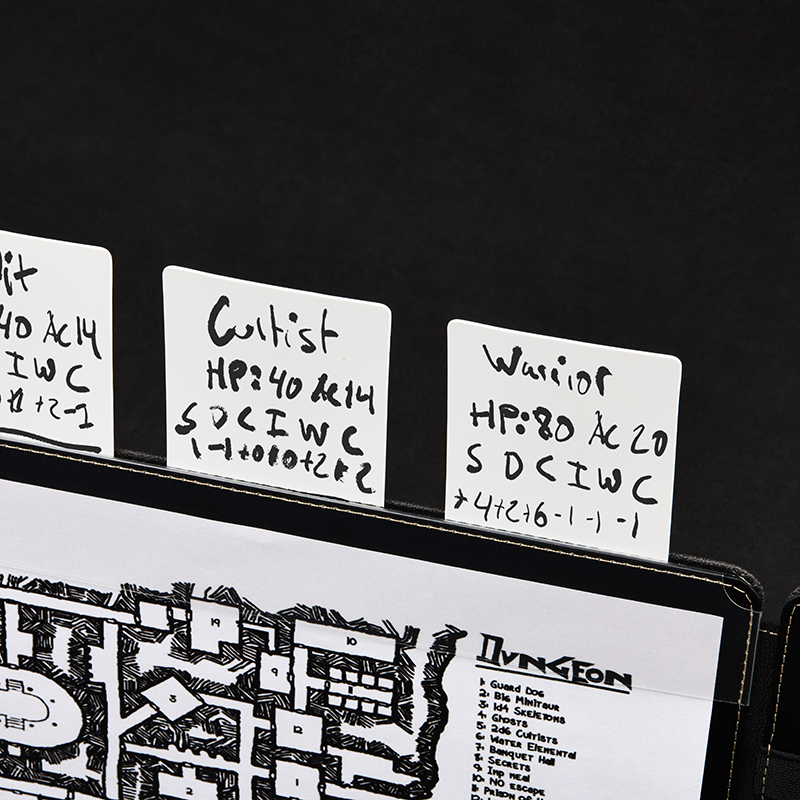 40 AC14
I W C
+2-1
Cultist
HP:40 AC14
S D C I W C
Warrior
HP:80 AC 20
S D C I W C
+4+2+6-1-1-1
19
10
9
3
12
2
1
DUNGEON
1: Guard Dog
2: Big Minitaur
3: 1d4 Skeletons
4: Ghosts
5: 2d6 Cultists
6: Water Elemental
7: Banquet Hall
8: Secrets
9: Imp meal
10: No escape
11: Prison of